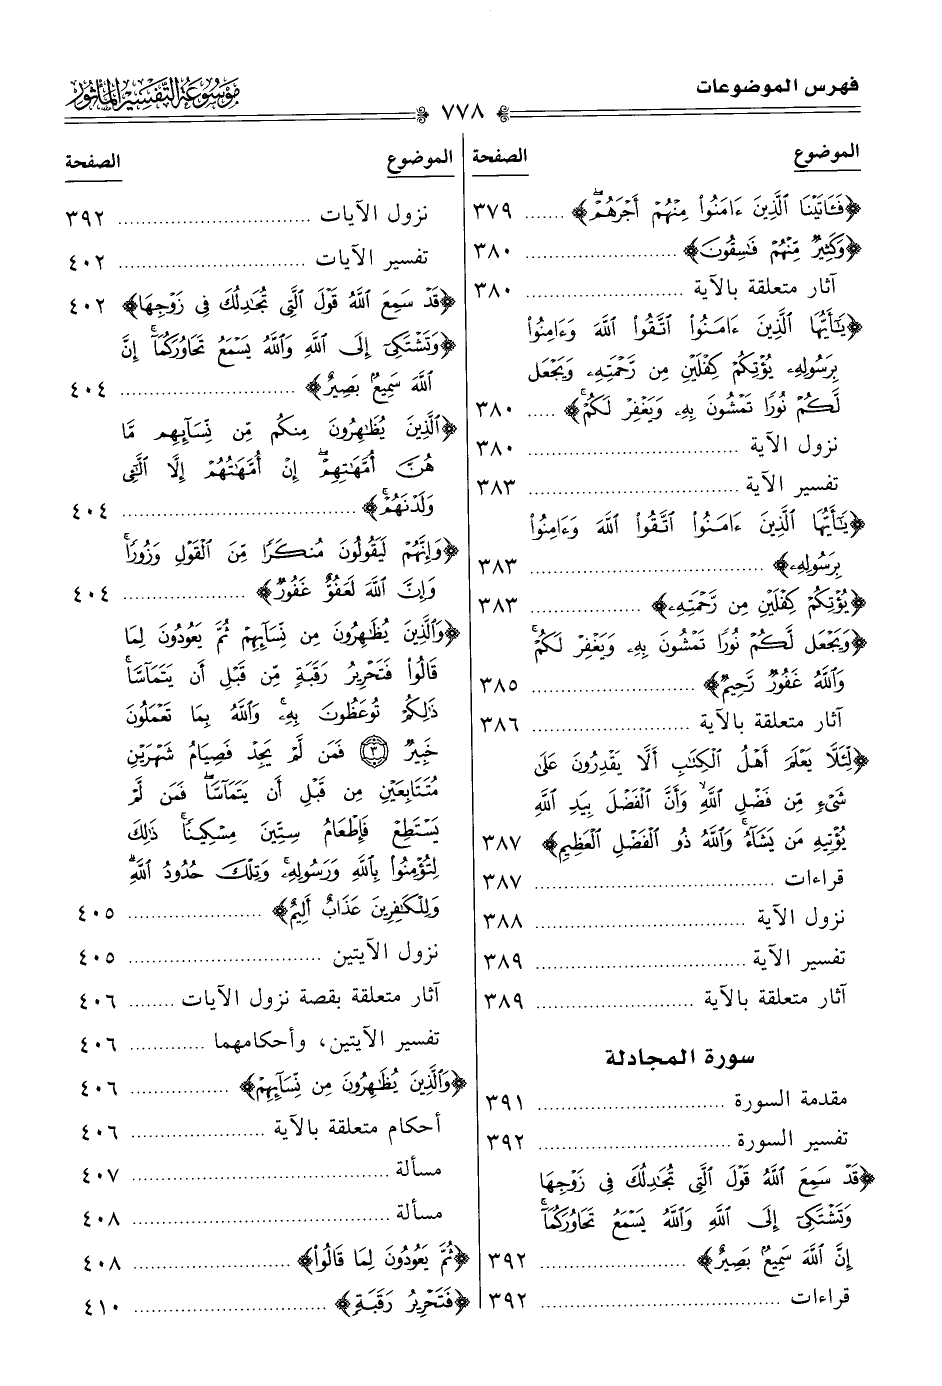 فهرس الموضوعات
٧٧٨
موسوعة التفسير المأثور
الموضوع الصفحة
﴿فَـَٔاتَيْنَا ٱلَّذِينَ ءَامَنُوا۟ مِنْهُمْ أَجْرَهُمْ ۖ﴾ ....... ٣٧٩
﴿وَكَثِيرٌ مِّنْهُمْ فَـٰسِقُونَ﴾ ....... ٣٨٠
آثار متعلقة بالآية ....... ٣٨٠
﴿يَـٰٓأَيُّهَا ٱلَّذِينَ ءَامَنُوا۟ ٱتَّقُوا۟ ٱللَّهَ وَءَامِنُوا۟
بِرَسُولِهِۦ يُؤْتِكُمْ كِفْلَيْنِ مِن رَّحْمَتِهِۦ وَيَجْعَل
لَّكُمْ نُورًا تَمْشُونَ بِهِۦ وَيَغْفِرْ لَكُمْ ۚ﴾ ..... ٣٨٠
نزول الآية ....... ٣٨٠
تفسير الآية ....... ٣٨٣
﴿يَـٰٓأَيُّهَا ٱلَّذِينَ ءَامَنُوا۟ ٱتَّقُوا۟ ٱللَّهَ وَءَامِنُوا۟
بِرَسُولِهِۦ﴾ ....... ٣٨٣
﴿يُؤْتِكُمْ كِفْلَيْنِ مِن رَّحْمَتِهِۦ﴾ ....... ٣٨٣
﴿وَيَجْعَل لَّكُمْ نُورًا تَمْشُونَ بِهِۦ وَيَغْفِرْ لَكُمْ ۚ
وَٱللَّهُ غَفُورٌ رَّحِيمٌ﴾ ....... ٣٨٥
آثار متعلقة بالآية ....... ٣٨٦
﴿لِّئَلَّا يَعْلَمَ أَهْلُ ٱلْكِتَـٰبِ أَلَّا يَقْدِرُونَ عَلَىٰ
شَىْءٍ مِّن فَضْلِ ٱللَّهِ ۙ وَأَنَّ ٱلْفَضْلَ بِيَدِ ٱللَّهِ
يُؤْتِيهِ مَن يَشَآءُ ۚ وَٱللَّهُ ذُو ٱلْفَضْلِ ٱلْعَظِيمِ﴾ ٣٨٧
قراءات ....... ٣٨٧
نزول الآية ....... ٣٨٨
تفسير الآية ....... ٣٨٩
آثار متعلقة بالآية ....... ٣٨٩
سورة المجادلة
مقدمة السورة ....... ٣٩١
تفسير السورة ....... ٣٩٢
﴿قَدْ سَمِعَ ٱللَّهُ قَوْلَ ٱلَّتِى تُجَـٰدِلُكَ فِى زَوْجِهَا
وَتَشْتَكِىٓ إِلَى ٱللَّهِ وَٱللَّهُ يَسْمَعُ تَحَاوُرَكُمَآ ۚ
إِنَّ ٱللَّهَ سَمِيعٌۢ بَصِيرٌ﴾ ....... ٣٩٢
قراءات ....... ٣٩٢
الموضوع الصفحة
نزول الآيات ....... ٣٩٢
تفسير الآيات ....... ٤٠٢
﴿قَدْ سَمِعَ ٱللَّهُ قَوْلَ ٱلَّتِى تُجَـٰدِلُكَ فِى زَوْجِهَا﴾ ٤٠٢
﴿وَتَشْتَكِىٓ إِلَى ٱللَّهِ وَٱللَّهُ يَسْمَعُ تَحَاوُرَكُمَآ ۚ إِنَّ
ٱللَّهَ سَمِيعٌۢ بَصِيرٌ﴾ ....... ٤٠٤
﴿ٱلَّذِينَ يُظَـٰهِرُونَ مِنكُم مِّن نِّسَآئِهِم مَّا
هُنَّ أُمَّهَـٰتِهِمْ ۖ إِنْ أُمَّهَـٰتُهُمْ إِلَّا ٱلَّـٰٓـِٔى
وَلَدْنَهُمْ ۚ﴾ ....... ٤٠٤
﴿وَإِنَّهُمْ لَيَقُولُونَ مُنكَرًا مِّنَ ٱلْقَوْلِ وَزُورًا ۚ
وَإِنَّ ٱللَّهَ لَعَفُوٌّ غَفُورٌ﴾ ....... ٤٠٤
﴿وَٱلَّذِينَ يُظَـٰهِرُونَ مِن نِّسَآئِهِمْ ثُمَّ يَعُودُونَ لِمَا
قَالُوا۟ فَتَحْرِيرُ رَقَبَةٍ مِّن قَبْلِ أَن يَتَمَآسَّا ۚ
ذَٰلِكُمْ تُوعَظُونَ بِهِۦ ۚ وَٱللَّهُ بِمَا تَعْمَلُونَ
خَبِيرٌ ٣ فَمَن لَّمْ يَجِدْ فَصِيَامُ شَهْرَيْنِ
مُتَتَابِعَيْنِ مِن قَبْلِ أَن يَتَمَآسَّا ۖ فَمَن لَّمْ
يَسْتَطِعْ فَإِطْعَامُ سِتِّينَ مِسْكِينًا ۚ ذَٰلِكَ
لِتُؤْمِنُوا۟ بِٱللَّهِ وَرَسُولِهِۦ ۚ وَتِلْكَ حُدُودُ ٱللَّهِ ۗ
وَلِلْكَـٰفِرِينَ عَذَابٌ أَلِيمٌ﴾ ....... ٤٠٥
نزول الآيتين ....... ٤٠٥
آثار متعلقة بقصة نزول الآيات ....... ٤٠٦
تفسير الآيتين، وأحكامهما ....... ٤٠٦
﴿وَٱلَّذِينَ يُظَـٰهِرُونَ مِن نِّسَآئِهِمْ﴾ ....... ٤٠٦
أحكام متعلقة بالآية ....... ٤٠٦
مسألة ....... ٤٠٧
مسألة ....... ٤٠٨
﴿ثُمَّ يَعُودُونَ لِمَا قَالُوا۟﴾ ....... ٤٠٨
﴿فَتَحْرِيرُ رَقَبَةٍ﴾ ....... ٤١٠